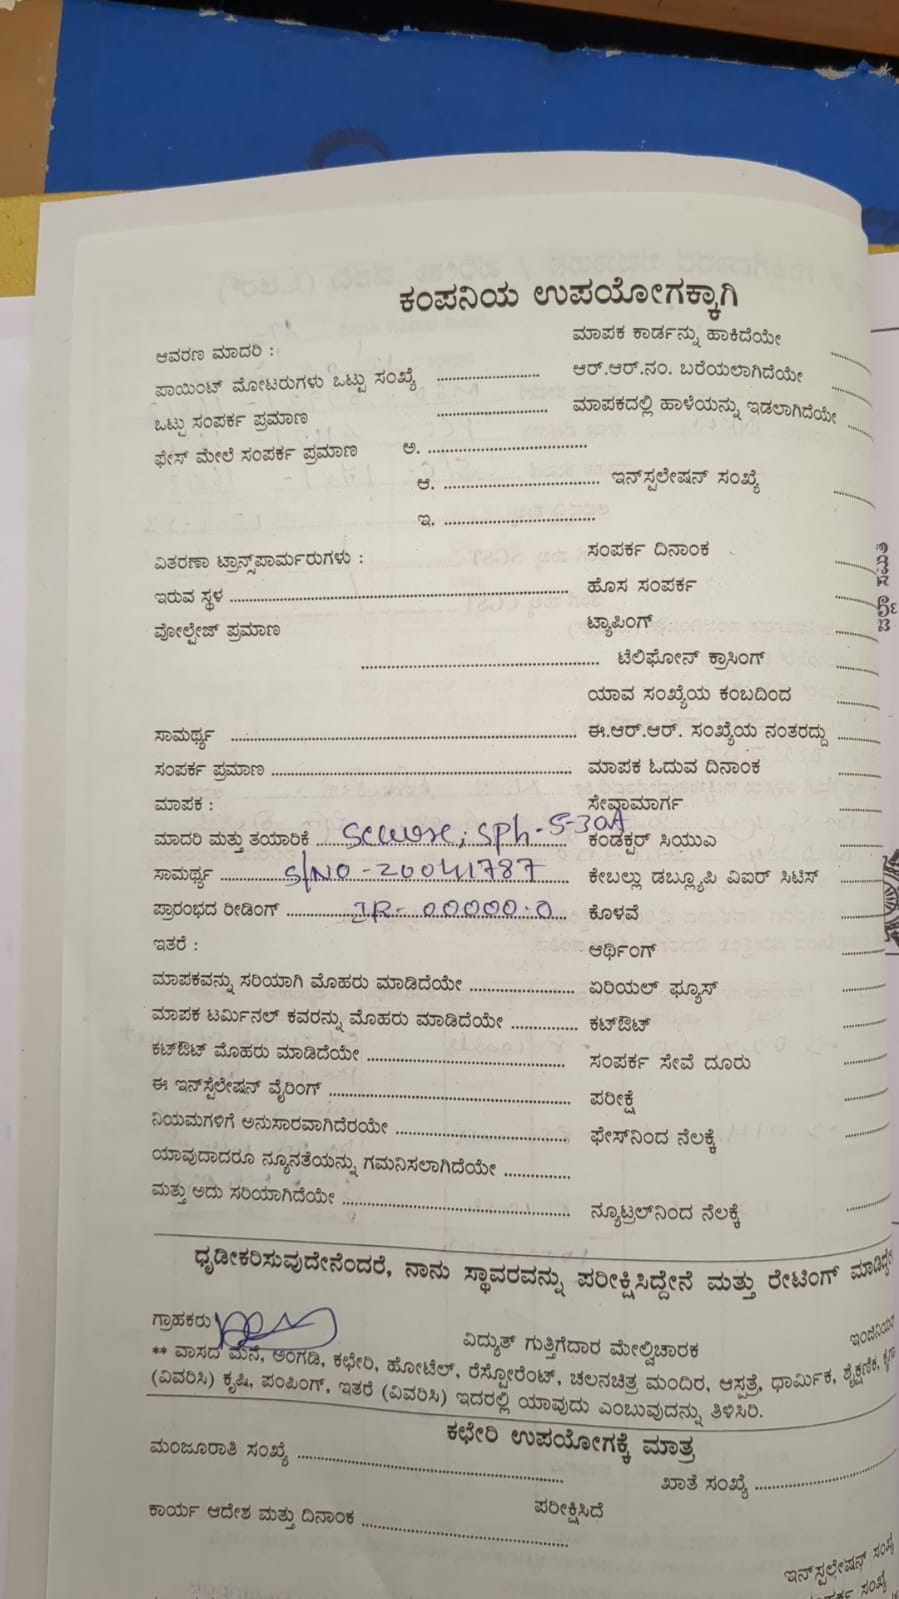 ಕಂಪನಿಯ ಉಪಯೋಗಕ್ಕಾಗಿ
ಆವರಣ ಮಾದರಿ : ಮಾಪಕ ಕಾರ್ಡನ್ನು ಹಾಕಿದೆಯೇ
ಪಾಯಿಂಟ್ ಮೋಟರುಗಳು ಒಟ್ಟು ಸಂಖ್ಯೆ ಆರ್.ಆರ್.ನಂ. ಬರೆಯಲಾಗಿದೆಯೇ
ಒಟ್ಟು ಸಂಪರ್ಕ ಪ್ರಮಾಣ ಮಾಪಕದಲ್ಲಿ ಹಾಳೆಯನ್ನು ಇಡಲಾಗಿದೆಯೇ
ಫೇಸ್ ಮೇಲೆ ಸಂಪರ್ಕ ಪ್ರಮಾಣ ಅ.
ಆ. ಇನ್‌ಸ್ಪಲೇಷನ್ ಸಂಖ್ಯೆ
ಇ.
ವಿತರಣಾ ಟ್ರಾನ್ಸ್‌ಪಾರ್ಮರುಗಳು : ಸಂಪರ್ಕ ದಿನಾಂಕ
ಇರುವ ಸ್ಥಳ ಹೊಸ ಸಂಪರ್ಕ
ವೋಲ್ಟೇಜ್ ಪ್ರಮಾಣ ಟ್ಯಾಪಿಂಗ್
ಟೆಲಿಫೋನ್ ಕ್ರಾಸಿಂಗ್
ಯಾವ ಸಂಖ್ಯೆಯ ಕಂಬದಿಂದ
ಸಾಮರ್ಥ್ಯ ಈ.ಆರ್.ಆರ್. ಸಂಖ್ಯೆಯ ನಂತರದ್ದು
ಸಂಪರ್ಕ ಪ್ರಮಾಣ ಮಾಪಕ ಓದುವ ದಿನಾಂಕ
ಮಾಪಕ : ಸೇವಾಮಾರ್ಗ
ಮಾದರಿ ಮತ್ತು ತಯಾರಿಕೆ Secure; SPh-5-30A ಕಂಡಕ್ಟರ್ ಸಿಯುಎ
ಸಾಮರ್ಥ್ಯ S/NO-20041787 ಕೇಬಲ್ಲು ಡಬ್ಲ್ಯೂಪಿ ವಿಐರ್ ಸಿಟಿಸ್
ಪ್ರಾರಂಭದ ರೀಡಿಂಗ್ IR-00000.0 ಕೊಳವೆ
ಇತರೆ : ಆರ್ಥಿಂಗ್
ಮಾಪಕವನ್ನು ಸರಿಯಾಗಿ ಮೊಹರು ಮಾಡಿದೆಯೇ ಏರಿಯಲ್ ಫ್ಯೂಸ್
ಮಾಪಕ ಟರ್ಮಿನಲ್ ಕವರನ್ನು ಮೊಹರು ಮಾಡಿದೆಯೇ ಕಟ್‌ಔಟ್
ಕಟ್‌ಔಟ್ ಮೊಹರು ಮಾಡಿದೆಯೇ ಸಂಪರ್ಕ ಸೇವೆ ದೂರು
ಈ ಇನ್‌ಸ್ಪೆಲೇಷನ್ ವೈರಿಂಗ್ ಪರೀಕ್ಷೆ
ನಿಯಮಗಳಿಗೆ ಅನುಸಾರವಾಗಿದೆರಯೇ ಫೇಸ್‌ನಿಂದ ನೆಲಕ್ಕೆ
ಯಾವುದಾದರೂ ನ್ಯೂನತೆಯನ್ನು ಗಮನಿಸಲಾಗಿದೆಯೇ
ಮತ್ತು ಅದು ಸರಿಯಾಗಿದೆಯೇ ನ್ಯೂಟ್ರಲ್‌ನಿಂದ ನೆಲಕ್ಕೆ
ಧೃಡೀಕರಿಸುವುದೇನೆಂದರೆ, ನಾನು ಸ್ಥಾವರವನ್ನು ಪರೀಕ್ಷಿಸಿದ್ದೇನೆ ಮತ್ತು ರೇಟಿಂಗ್
ಗ್ರಾಹಕರು ವಿದ್ಯುತ್ ಗುತ್ತಿಗೆದಾರ ಮೇಲ್ವಿಚಾರಕ
** ವಾಸದ ಮನೆ, ಅಂಗಡಿ, ಕಛೇರಿ, ಹೋಟೆಲ್, ರೆಸ್ಟೋರೆಂಟ್, ಚಲನಚಿತ್ರ ಮಂದಿರ, ಆಸ್ಪತ್ರೆ, ಧಾರ್ಮಿಕ, ಶೈಕ್ಷಣಿಕ,
(ವಿವರಿಸಿ) ಕೃಷಿ, ಪಂಪಿಂಗ್, ಇತರೆ (ವಿವರಿಸಿ) ಇದರಲ್ಲಿ ಯಾವುದು ಎಂಬುವುದನ್ನು ತಿಳಿಸಿರಿ.
ಕಛೇರಿ ಉಪಯೋಗಕ್ಕೆ ಮಾತ್ರ
ಮಂಜೂರಾತಿ ಸಂಖ್ಯೆ ಖಾತೆ ಸಂಖ್ಯೆ
ಕಾರ್ಯ ಆದೇಶ ಮತ್ತು ದಿನಾಂಕ ಪರೀಕ್ಷಿಸಿದೆ
ಇನ್‌ಸ್ಪಲೇಷನ್